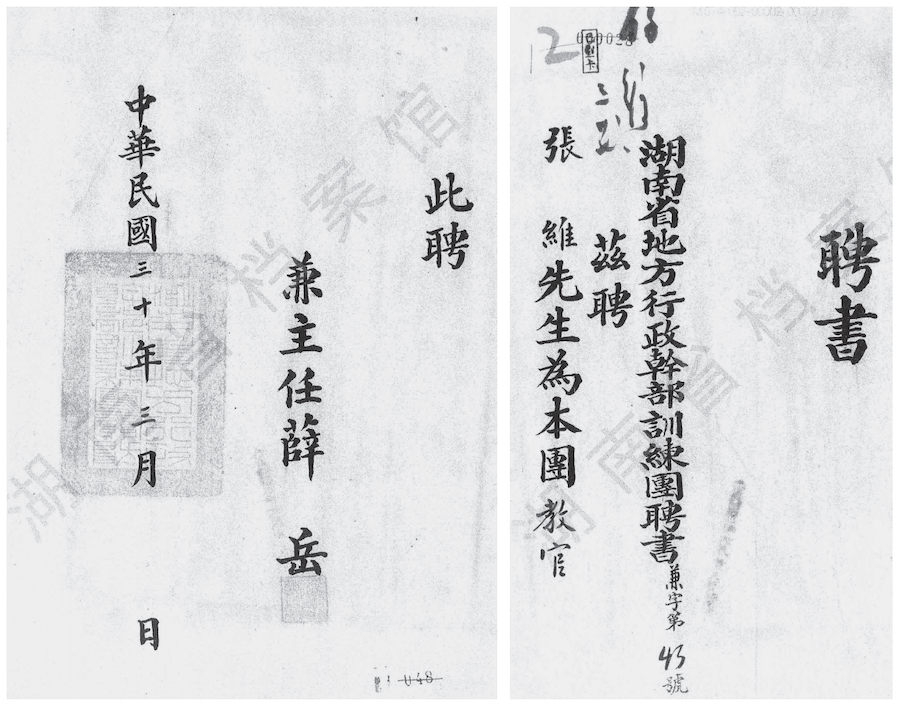 聘書
湖南省地方行政幹部訓練團聘書 兼字第45號
茲聘
張維先生為本團教官
12
000028
此聘
兼主任薛岳
中華民國三十年三月 日
048
湖南省档案馆
湖南省档案馆